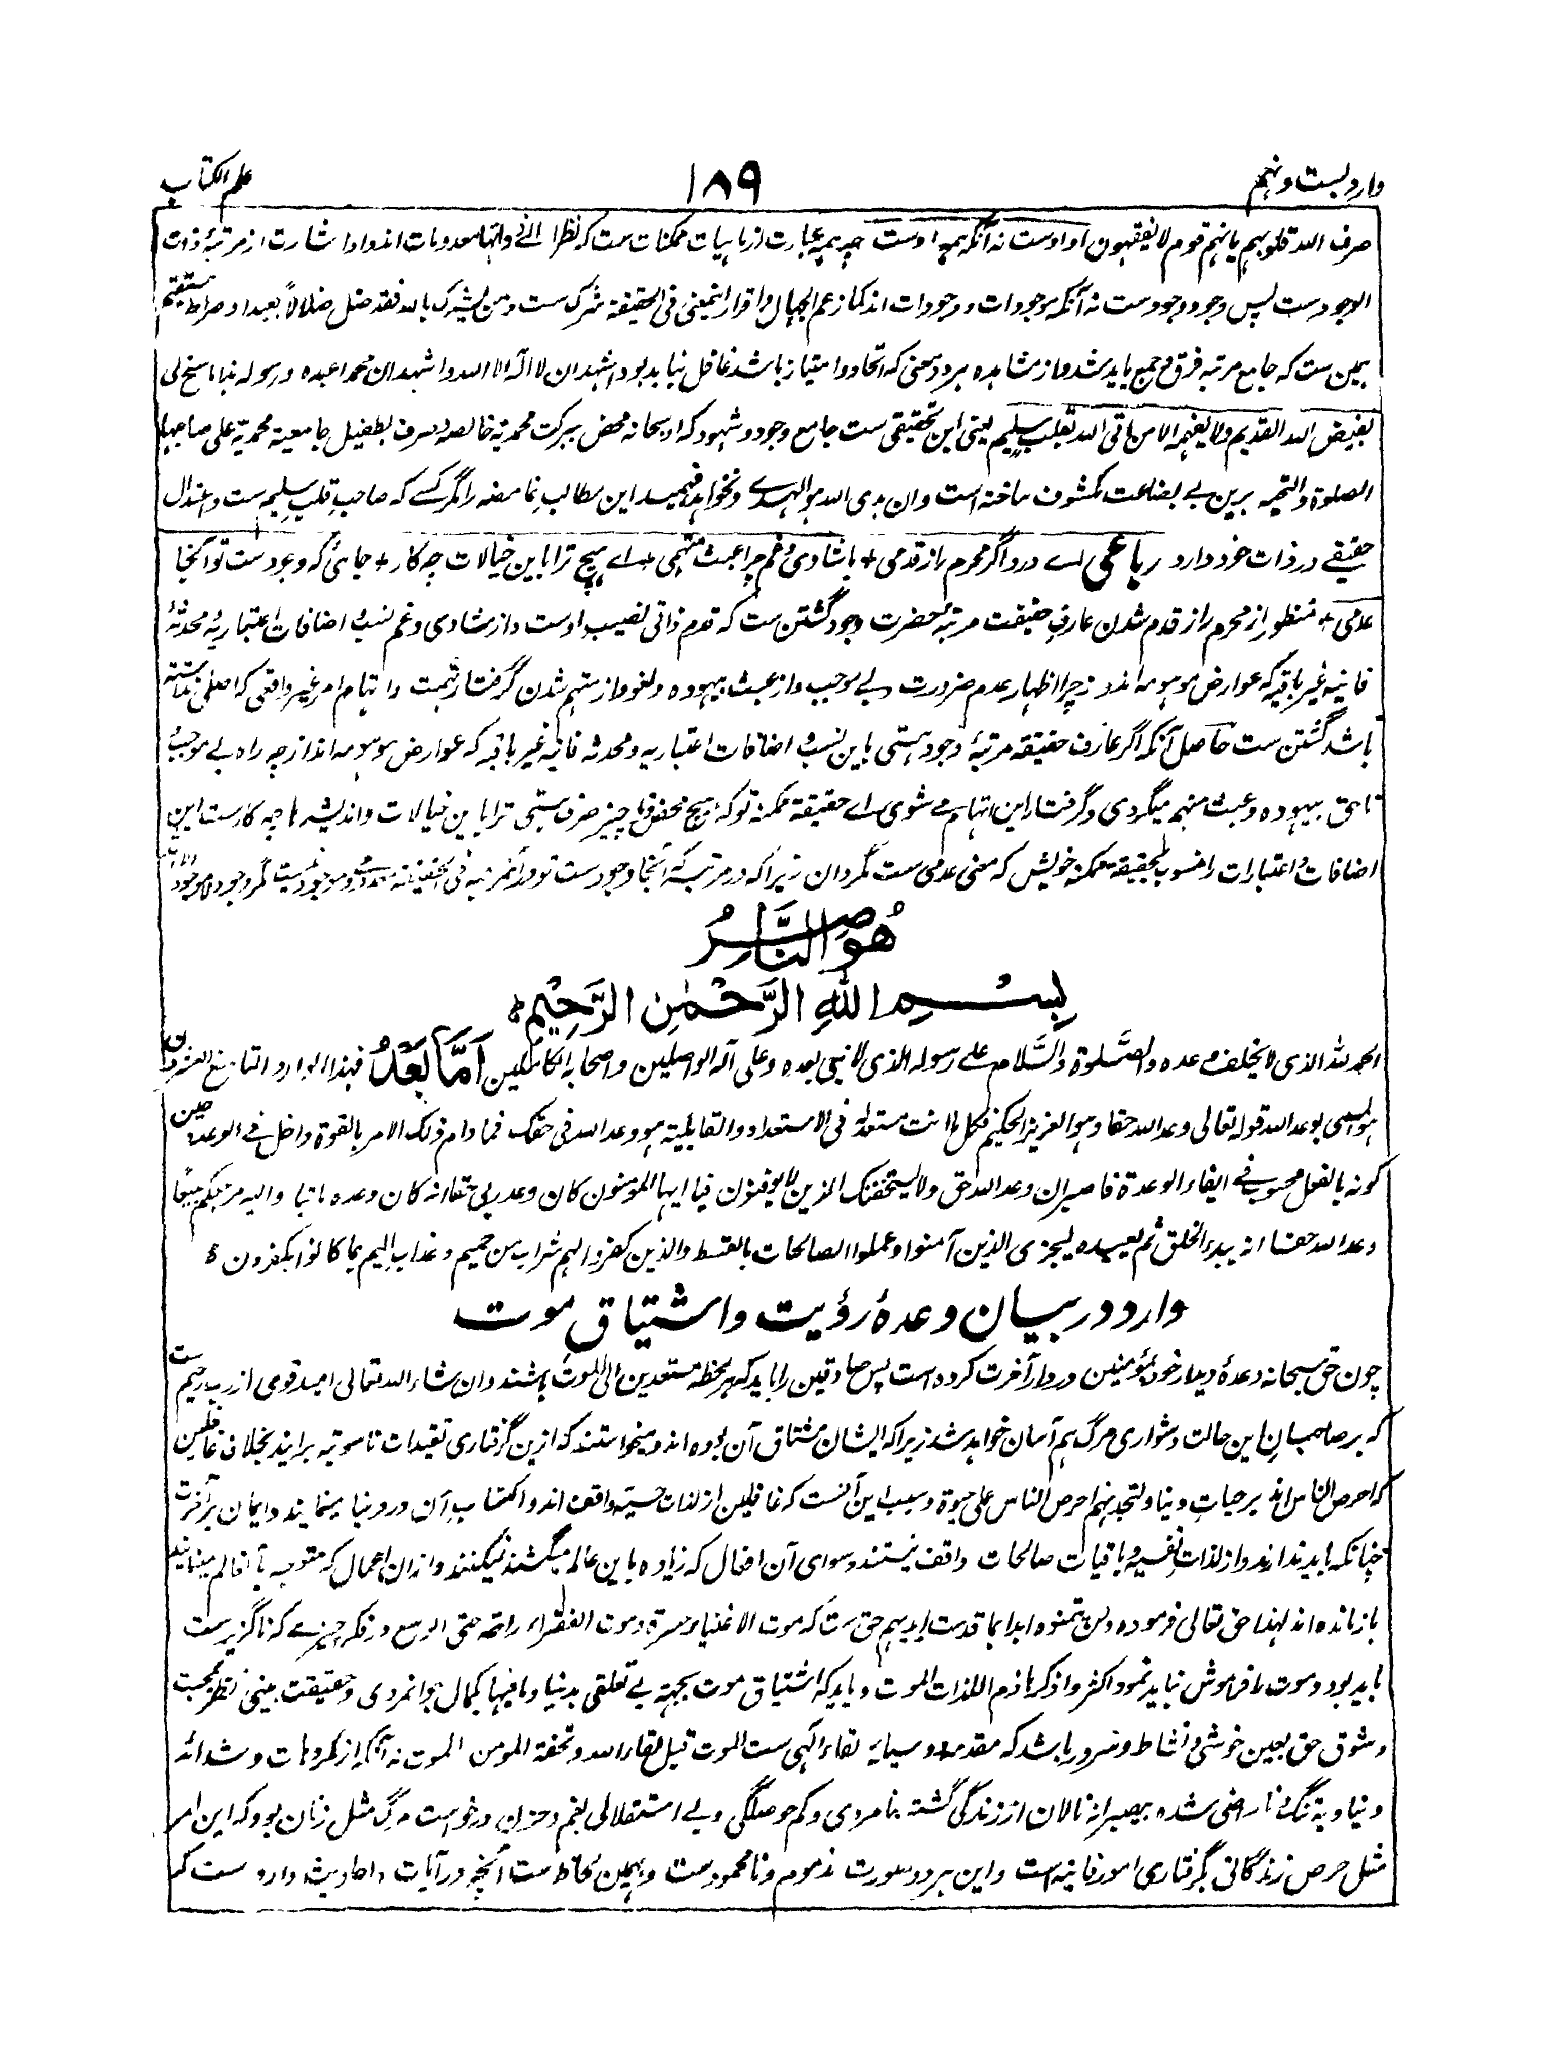 وارد بست و نهم ۱۸۹ علم الکتاب
صرف اللہ قلوبہم بانہم قوم لا یفقہون او اوست نہ آنکہ ہمہ اوست چہ ہمہ عبارت از ماہیات ممکنات ست کہ نظر الی ذواتہا معدومات اند و او اشارت از مرتبۂ ذات
الوجود ست پس وجود وجود ست نہ آنکہ موجودات وجودات اند کما زعم الجہال و اقرار اینمعنی فی الحقیقۃ شرک ست و من یشرک باللہ فقد ضل ضلالاً بعیدا و صراط مستقیم
ہمین ست کہ جامع مرتبہ فرق و جمع باید شد و از مشاہدہ ہر دو معنی کہ اتحاد و امتیاز باشد غافل نباید بود اشہد ان لا الہ الا اللہ و اشہد ان محمدا عبدہ و رسولہ ہذا ما سنح لی
بفیض اللہ القدیم ولا یفہمہ الا من اتی اللہ بقلب سلیم یعنی این تحقیقی ست جامع وجود و شہود کہ او سبحانہ محض ببرکت محمدیہ خالصہ و صرف بطفیل جامعیۃ محمدیۃ علی صاحبہا
الصلوۃ و التحیۃ برین بے بضاعت مکشوف ساختہ است و ان ہدی اللہ ہو الہدے و نخواہد فہمید این مطالب غامضہ را مگر کسے کہ صاحب قلب سلیم ست و اعتدال
حقیقے در ذات خود دارد رباعی اے درد اگر محرم راز قدمی + باشادی و غم چرا عبث متہمی + اے ہیچ ترا باین خیالات چہ کار + جائی کہ وجود ست تو آنجا
عدمی + منظور از محرم راز قدم شدن عارف حقیقت مرتبۂ حضرت وجود گشتن ست کہ قدم ذاتی نصیب اوست و از شادی و غم نسب و اضافات اعتباریۂ محدثۂ
فانیہ غیر باقیہ کہ عوارض موہومہ اند و ز چرا اظہار عدم ضرورت و بے موجب و از عبث بیہودہ و لغو و از متہم شدن گرفتار تہمت و اتہام امر غیر واقعی کہ اصلی نداشتہ
باشد گشتن ست حاصل آنکہ اگر عارف حقیقۃ مرتبۂ وجود ہستی باین نسب و اضافات اعتباریہ و محدثہ فانیہ غیر باقیہ کہ عوارض موہومہ اند از چہ راہ بے موجب
ناحق بیہودہ و عبث متہم میگردی و گرفتار این اتہام مے شوی اے حقیقۃ ممکنہ تو کہ ہیچ محض و ناچیز صرف ہستی ترا باین خیالات و اندیشہ ہا چہ کارست این
اضافات و اعتبارات را منسوب بحقیقۃ ممکنہ خویش کہ معنی عدمی ست مگردان زیرا کہ در مرتبہ کہ آنجا وجود ست تو در آنمرتبہ فی الحقیقۃ معدومی و موجود نیست مگر وجود
ھُو النَّاصِرُ
بِسْمِ اللّٰہِ الرَّحْمٰنِ الرَّحِیْمِ
الحمد للہ الذی لا یخلف وعدہ والصلوۃ والسَّلام علے رسولہ الذی لا نبی بعدہ وعلی آلہ الواصلین واصحابہ الکاملین اَمَّا بَعْدُ فہذا الوارد التاسع العشرون
ہو المسمی بوعد اللہ قولہ تعالی وعد اللہ حقا و ہو العزیز الحکیم فکل ما انت مستعد لہ فی الاستعداد والقابلیۃ ہو وعد اللہ فی حقک فما دام ذلک الامر بالقوۃ داخل فے الوعد و حین
کونہ بالفعل محسوب فے ایفاء الوعدۃ فاصبر ان وعد اللہ حق ولا یستخفنک الذین لا یوقنون فیا ایہا المومنون کان وعد ربی حقا انہ کان وعدہ ماتیا والیہ مرجعکم جمیعاً
وعد اللہ حقا انہ یبدء الخلق ثم یعیدہ لیجزی الذین آمنوا وعملوا الصالحات بالقسط والذین کفروا لہم شراب من حمیم وعذاب الیم بما کانوا یکفرون
وارد در بیان وعدۂ رؤیت و اشتیاق موت
چون حق سبحانہ وعدۂ دیدار خود بمؤمنین در دار آخرت کردہ است پس صادقین را باید کہ ہر لحظہ مستعدین الی الموت باشند و ان شاء اللہ تعالی امید قوی از رب رحیم ست
کہ بر صاحبان این حالت دشواری مرگ ہم آسان خواہد شد زیرا کہ ایشان مشتاق آن بودہ اند و میخواستند کہ ازین گرفتاری تقیدات ناسوتیہ برایند بخلاف غافلین
کہ احرص الناس اند بر حیات دنیا ولتجدنہم احرص الناس علی حیوۃ و سبب این آنست کہ غافلین از لذات حسیہ واقف اند و اکتساب آن در دنیا مینمایند و ایمان بر آخرت
چنانکہ باید ندارند و از لذات نفسیہ و باقیات صالحات واقف نیستند و سوای آن افعال کہ زیادہ باین عالم میکشند نیکنند و از ان اعمال کہ متوجہ بآنعالم مینمایند
باز ماندہ اند لہذا حق تعالی فرمودہ ولن یتمنوہ ابدا بما قدمت ایدیہم حق ست کہ موت الاغنیاء حسرۃ و موت الفقراء راحۃ حتی الوسع در فکر چیزے کہ ناگزیر ست
باید بود و موت را فراموش نباید نمود اکثروا ذکر ہاذم اللذات الموت و باید کہ اشتیاق موت بجہۃ بے تعلقی بدنیا و مافیہا بکمال جوانمردی و حقیقت بینی و نظر بمحبت
و شوق حق بعین خوشی و نشاط و سرور باشد کہ مقدمہ و سیلۂ لقاء الہی ست الموت قبل لقاء اللہ و تحفۃ المومن الموت نہ آنکہ از مکروہات و شدائد
دنیا و بتنگی ناراضی شدہ بیصبرانہ نالان از زندگی گشتہ بنامردی و کم حوصلگی و بے استقلالی بغم و حزن درخواست مرگ مثل زنان بود کہ این امر
مثل حرص زندگانی گرفتاری امور فانیہ است و این ہر دو صورت مذموم و نامحمود ست و بہمین لحاظ ست آنچہ در آیات و احادیث وارد ست کہ